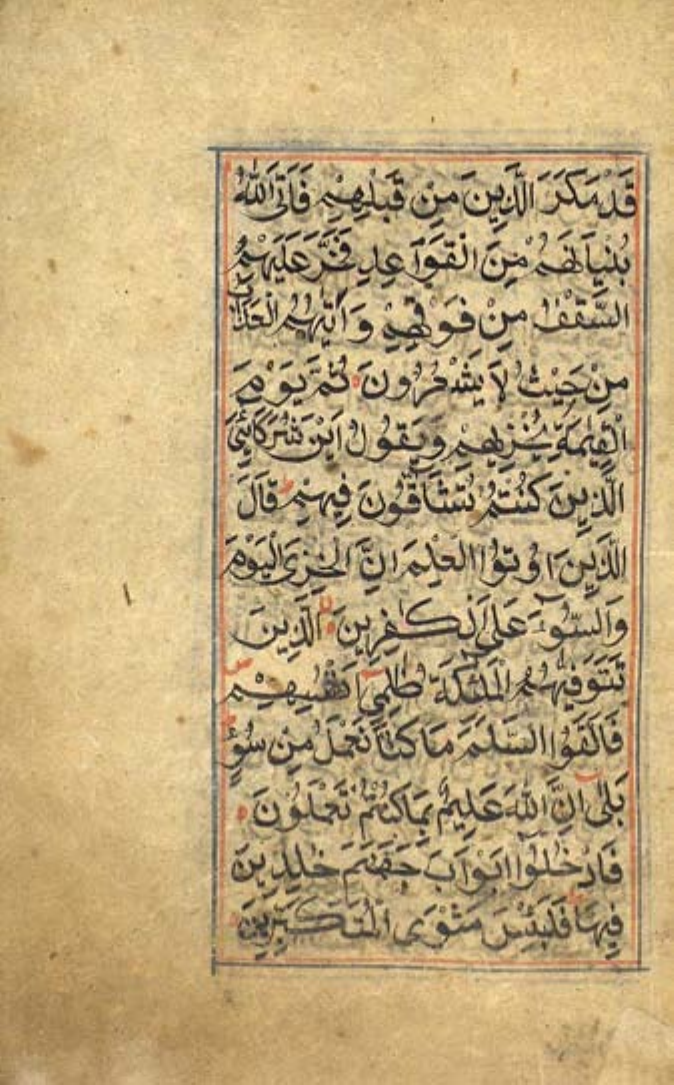 قَدْ مَكَرَ الَّذِينَ مِنْ قَبْلِهِمْ فَاَتَى اللّٰهُ
بُنْيَانَهُمْ مِنَ الْقَوَاعِدِ فَخَرَّ عَلَيْهِمُ
السَّقْفُ مِنْ فَوْقِهِمْ وَاَتٰيهُمُ الْعَذَابُ
مِنْ حَيْثُ لَا يَشْعُرُونَ ثُمَّ يَوْمَ
الْقِيٰمَةِ يُخْزِيهِمْ وَيَقُولُ اَيْنَ شُرَكَائِيَ
الَّذِينَ كُنْتُمْ تُشَاقُّونَ فِيهِمْ قَالَ
الَّذِينَ اُوتُوا الْعِلْمَ اِنَّ الْخِزْيَ الْيَوْمَ
وَالسُّوءَ عَلَى الْكٰفِرِينَ الَّذِينَ
تَتَوَفّٰيهُمُ الْمَلٰئِكَةُ ظَالِمِي اَنْفُسِهِمْ
فَاَلْقَوُا السَّلَمَ مَا كُنَّا نَعْمَلُ مِنْ سُوءٍ
بَلٰى اِنَّ اللّٰهَ عَلِيمٌ بِمَا كُنْتُمْ تَعْمَلُونَ
فَادْخُلُوا اَبْوَابَ جَهَنَّمَ خٰلِدِينَ
فِيهَا فَلَبِئْسَ مَثْوَى الْمُتَكَبِّرِينَ